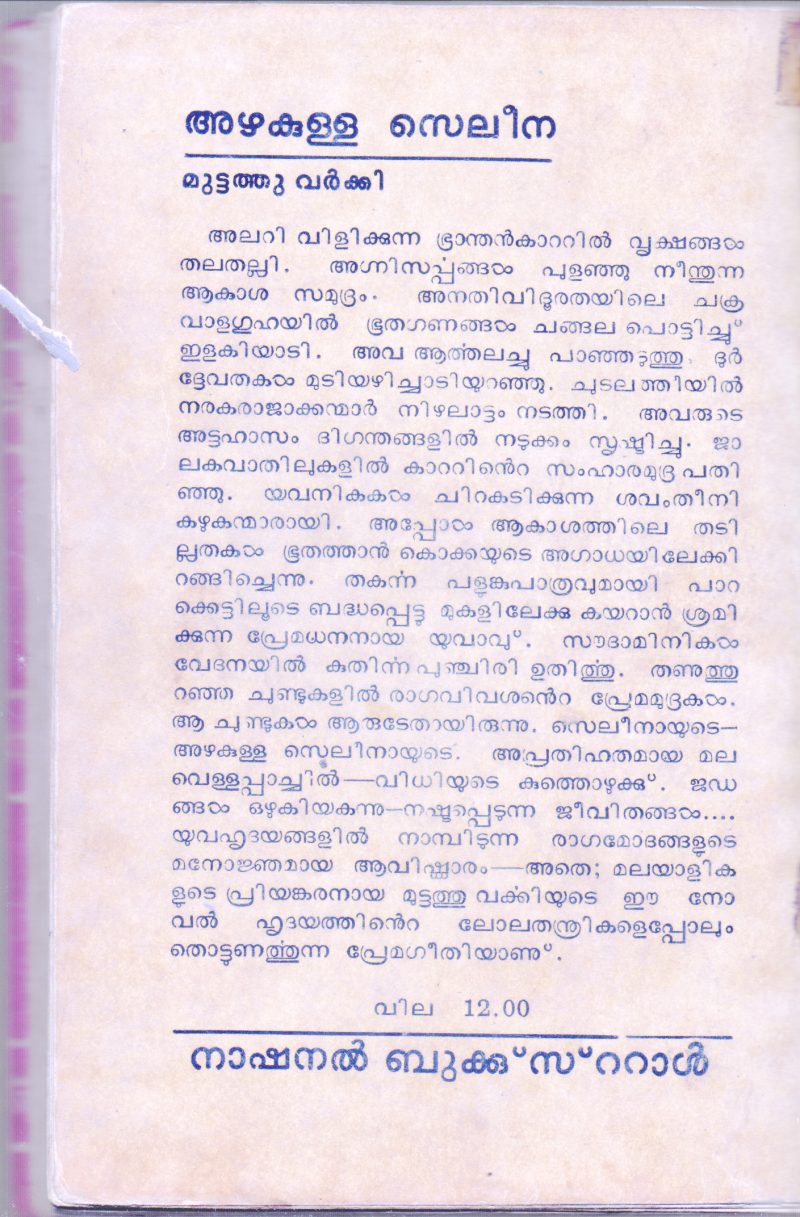 അഴകുള്ള സെലീന
മുട്ടത്തു വർക്കി
അലറി വിളിക്കുന്ന ഭ്രാന്തൻകാററിൽ വൃക്ഷങ്ങൾ
തലതല്ലി. അഗ്നിസൎപ്പങ്ങൾ പുളഞ്ഞു നീന്തുന്ന
ആകാശ സമുദ്രം. അനതിവിദൂരതയിലെ ചക്ര
വാളഗുഹയിൽ ഭൂതഗണങ്ങൾ ചങ്ങല പൊട്ടിച്ചു്
ഇളകിയാടി. അവ ആൎത്തലച്ചു പാഞ്ഞടുത്തു. ദുർ
ദ്ദേവതകൾ മുടിയഴിച്ചാടിയുറഞ്ഞു. ചുടലത്തിയിൽ
നരകരാജാക്കന്മാർ നിഴലാട്ടം നടത്തി. അവരുടെ
അട്ടഹാസം ദിഗന്തങ്ങളിൽ നടുക്കം സൃഷ്ടിച്ചു. ജാ
ലകവാതിലുകളിൽ കാററിൻെറ സംഹാരമുദ്ര പതി
ഞ്ഞു. യവനികകൾ ചിറകടിക്കുന്ന ശവംതീനി
കഴുകന്മാരായി. അപ്പോൾ ആകാശത്തിലെ തടി
ല്ലതകൾ ഭൂതത്താൻ കൊക്കയുടെ അഗാധയിലേക്കി
റങ്ങിച്ചെന്നു. തകൎന്ന പളുങ്കുപാത്രവുമായി പാറ
ക്കെട്ടിലൂടെ ബദ്ധപ്പെട്ടു മുകളിലേക്കു കയറാൻ ശ്രമി
ക്കുന്ന പ്രേമധനനായ യുവാവു്. സൗദാമിനികൾ
വേദനയിൽ കുതിൎന്ന പുഞ്ചിരി ഉതിൎത്തു. തണുത്തു
റഞ്ഞ ചുണ്ടുകളിൽ രാഗവിവശൻെറ പ്രേമമുദ്രകൾ.
ആ ചുണ്ടുകൾ ആരുടേതായിരുന്നു. സെലീനായുടെ—
അഴകുള്ള സെലീനായുടെ. അപ്രതിഹതമായ മല
വെള്ളപ്പാച്ചിൽ—വിധിയുടെ കുത്തൊഴുക്കു്. ജഡ
ങ്ങൾ ഒഴുകിയകന്നു—നഷ്ടപ്പെടുന്ന ജീവിതങ്ങൾ....
യുവഹൃദയങ്ങളിൽ നാമ്പിടുന്ന രാഗമോദങ്ങളുടെ
മനോജ്ഞമായ ആവിഷ്ക്കാരം—അതെ; മലയാളിക
ളുടെ പ്രിയങ്കരനായ മുട്ടത്തു വൎക്കിയുടെ ഈ നോ
വൽ ഹൃദയത്തിൻെറ ലോലതന്ത്രികളെപ്പോലും
തൊട്ടുണൎത്തുന്ന പ്രേമഗീതിയാണു്.
വില 12.00
നാഷനൽ ബുക്കു്സ്ററാൾ